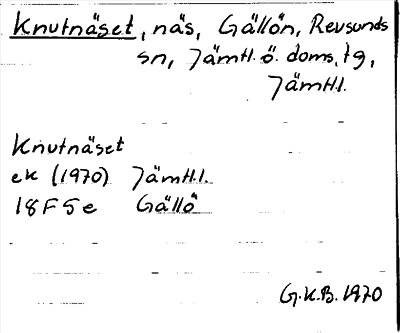 Knutnäset, näs, Gällön, Revsunds
sn, Jämtl. ö. doms. tg,
Jämtl.l.
Knutnäset
ek (1970) Jämtl.l.
18F5e Gällö
G.K.B. 1970